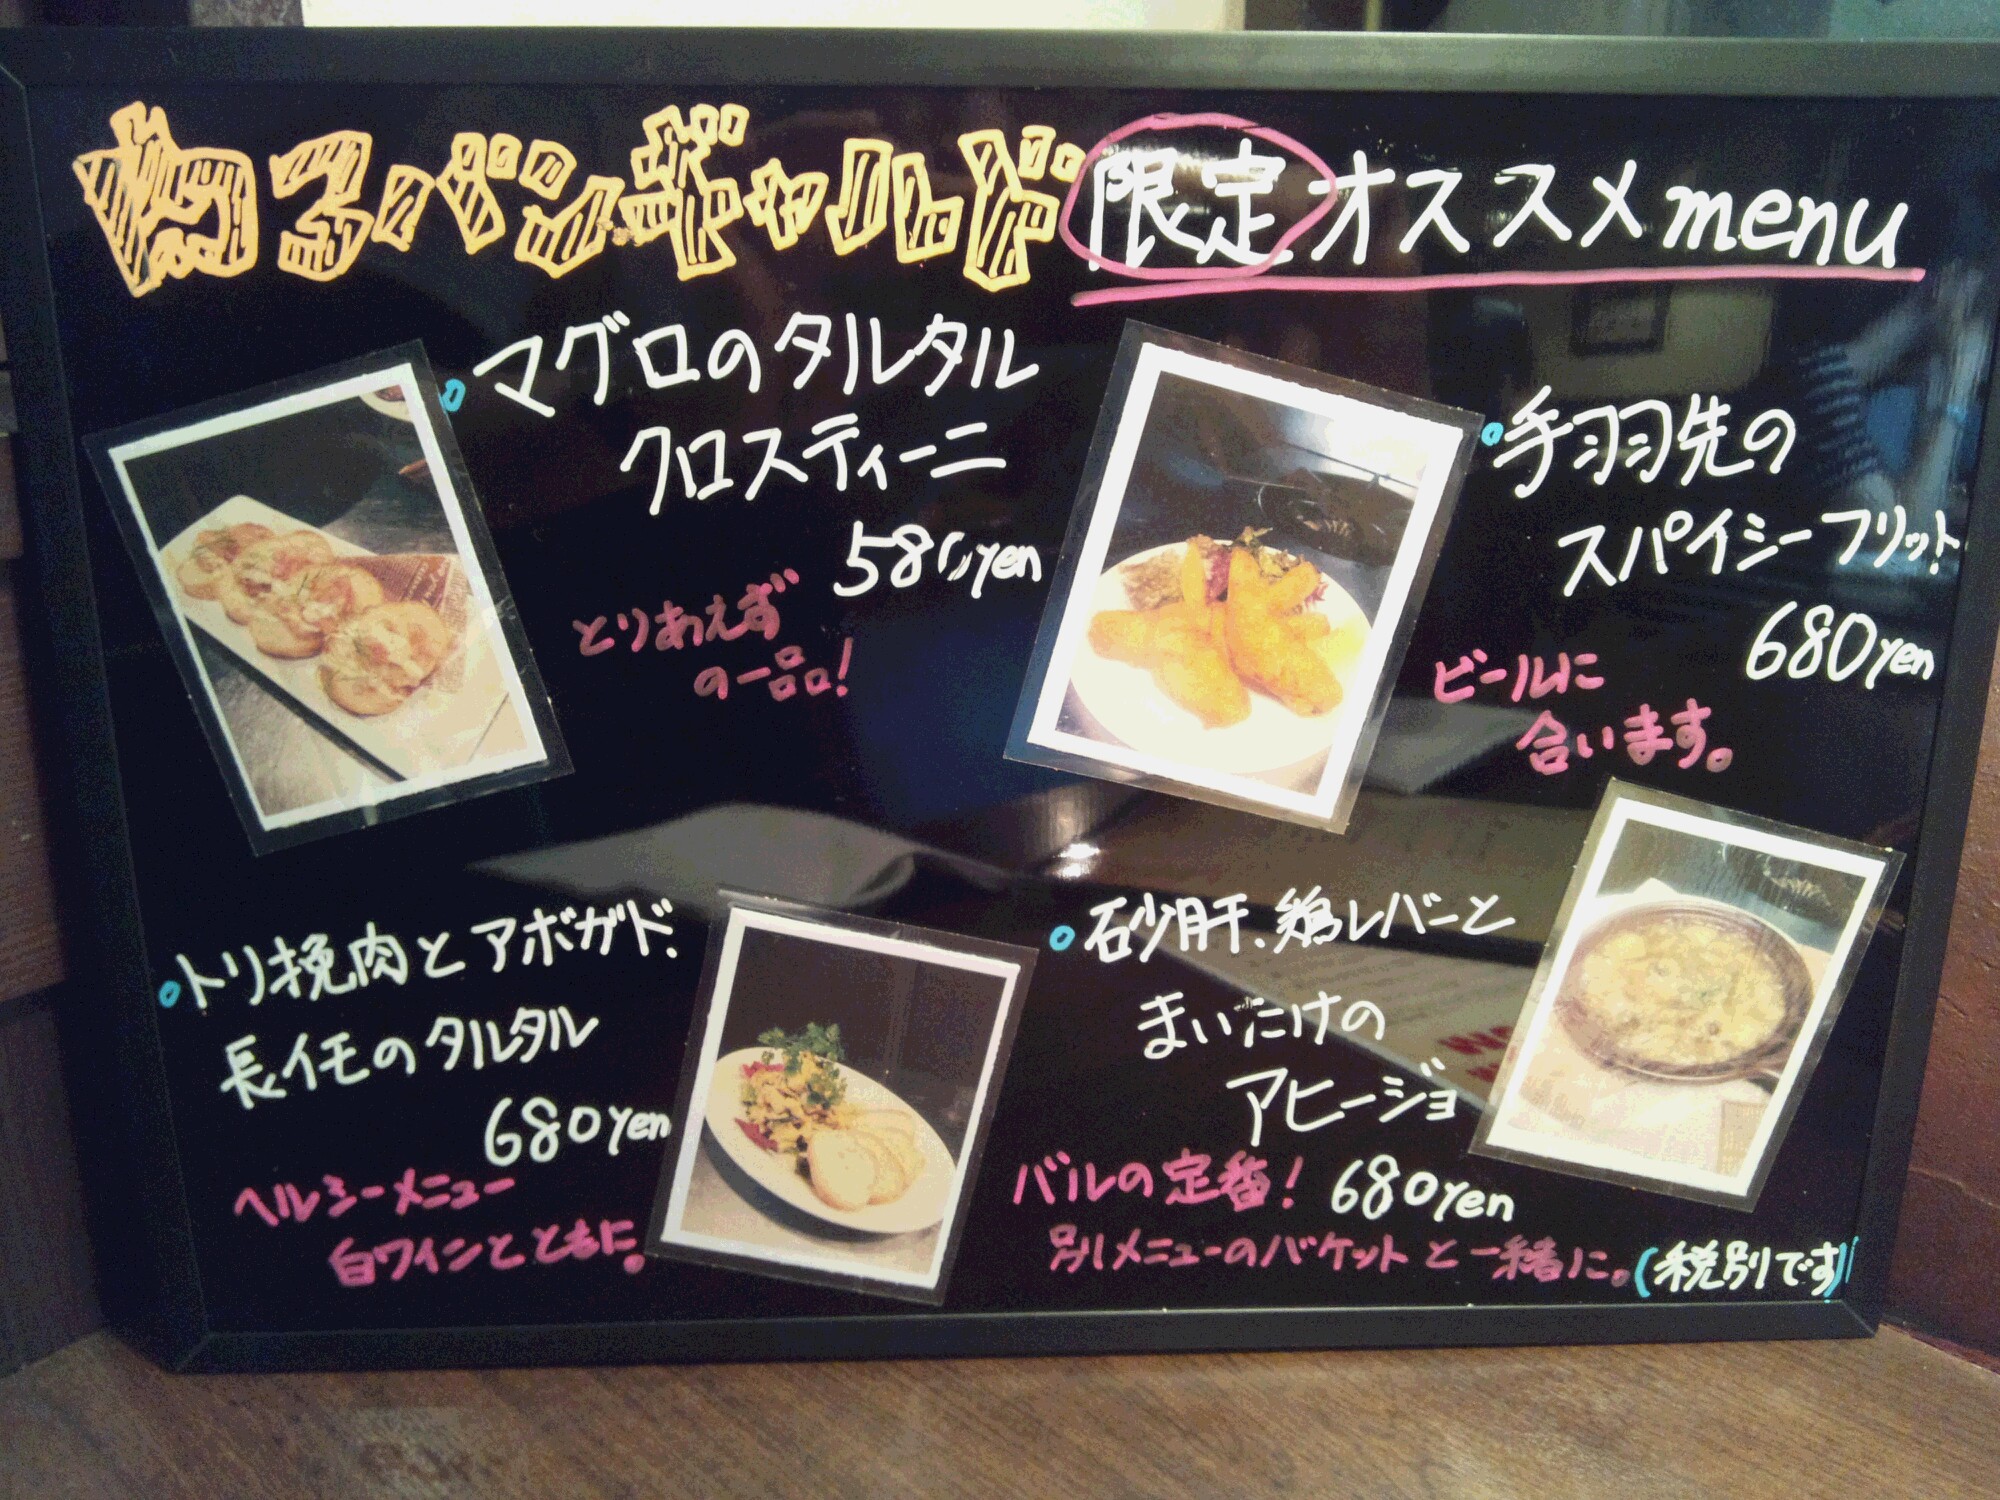 バンギャルド限定オススメmenu
マグロのタルタル
クロスティーニ
580yen
とりあえず
の一品!
手羽先の
スパイシーフリット
680yen
ビールに
合います。
トリ挽肉とアボガド、
長イモのタルタル
680yen
ヘルシーメニュー
白ワインとともに。
砂肝、鶏レバーと
まいたけの
アヒージョ
バルの定番! 680yen
別メニューのバケットと一緒に。(税別です)